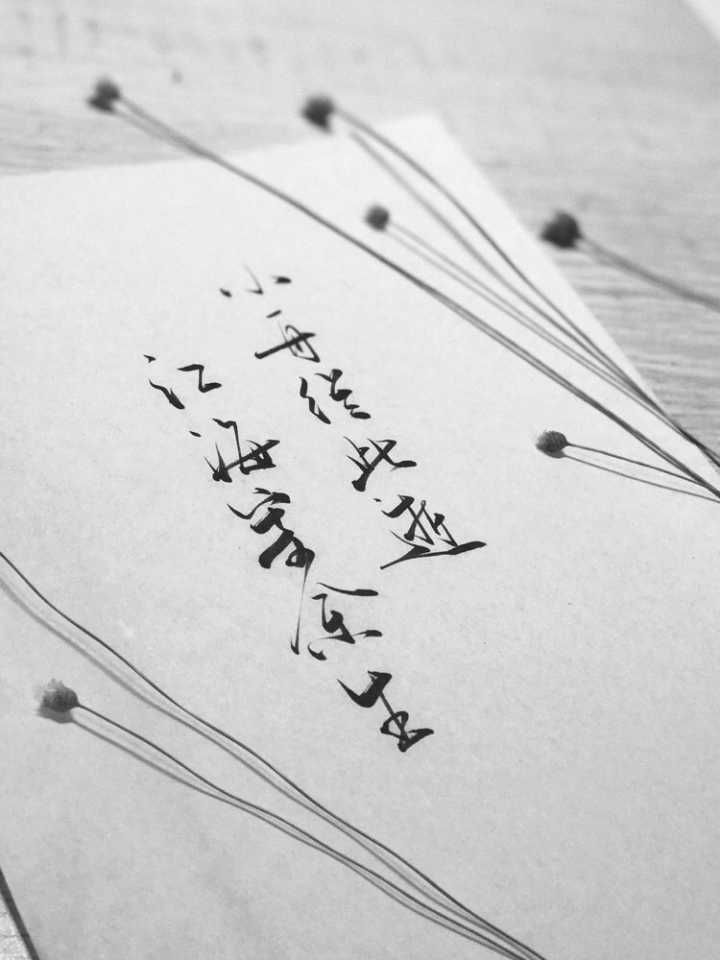 小舟从此逝
江海寄余生